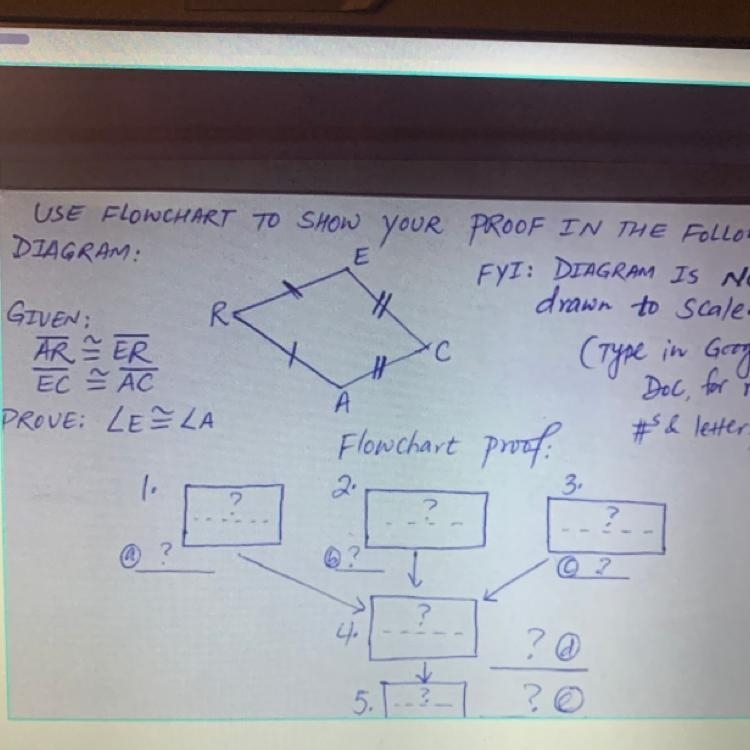 USE FLOWCHART TO SHOW YOUR PROOF IN THE
DIAGRAM:
FYI: DIAGRAM IS
drawn to scale.
(Type in
Doc, for
#s & letter
GIVEN:
AR ≅ ER
EC ≅ AC
PROVE: ∠E ≅ ∠A
E
R
C
A
Flowchart proof:
1. ?
2. ?
3. ?
ⓐ ?
ⓑ ?
ⓒ ?
4. ?
? ⓓ
5. ?
? ⓔ